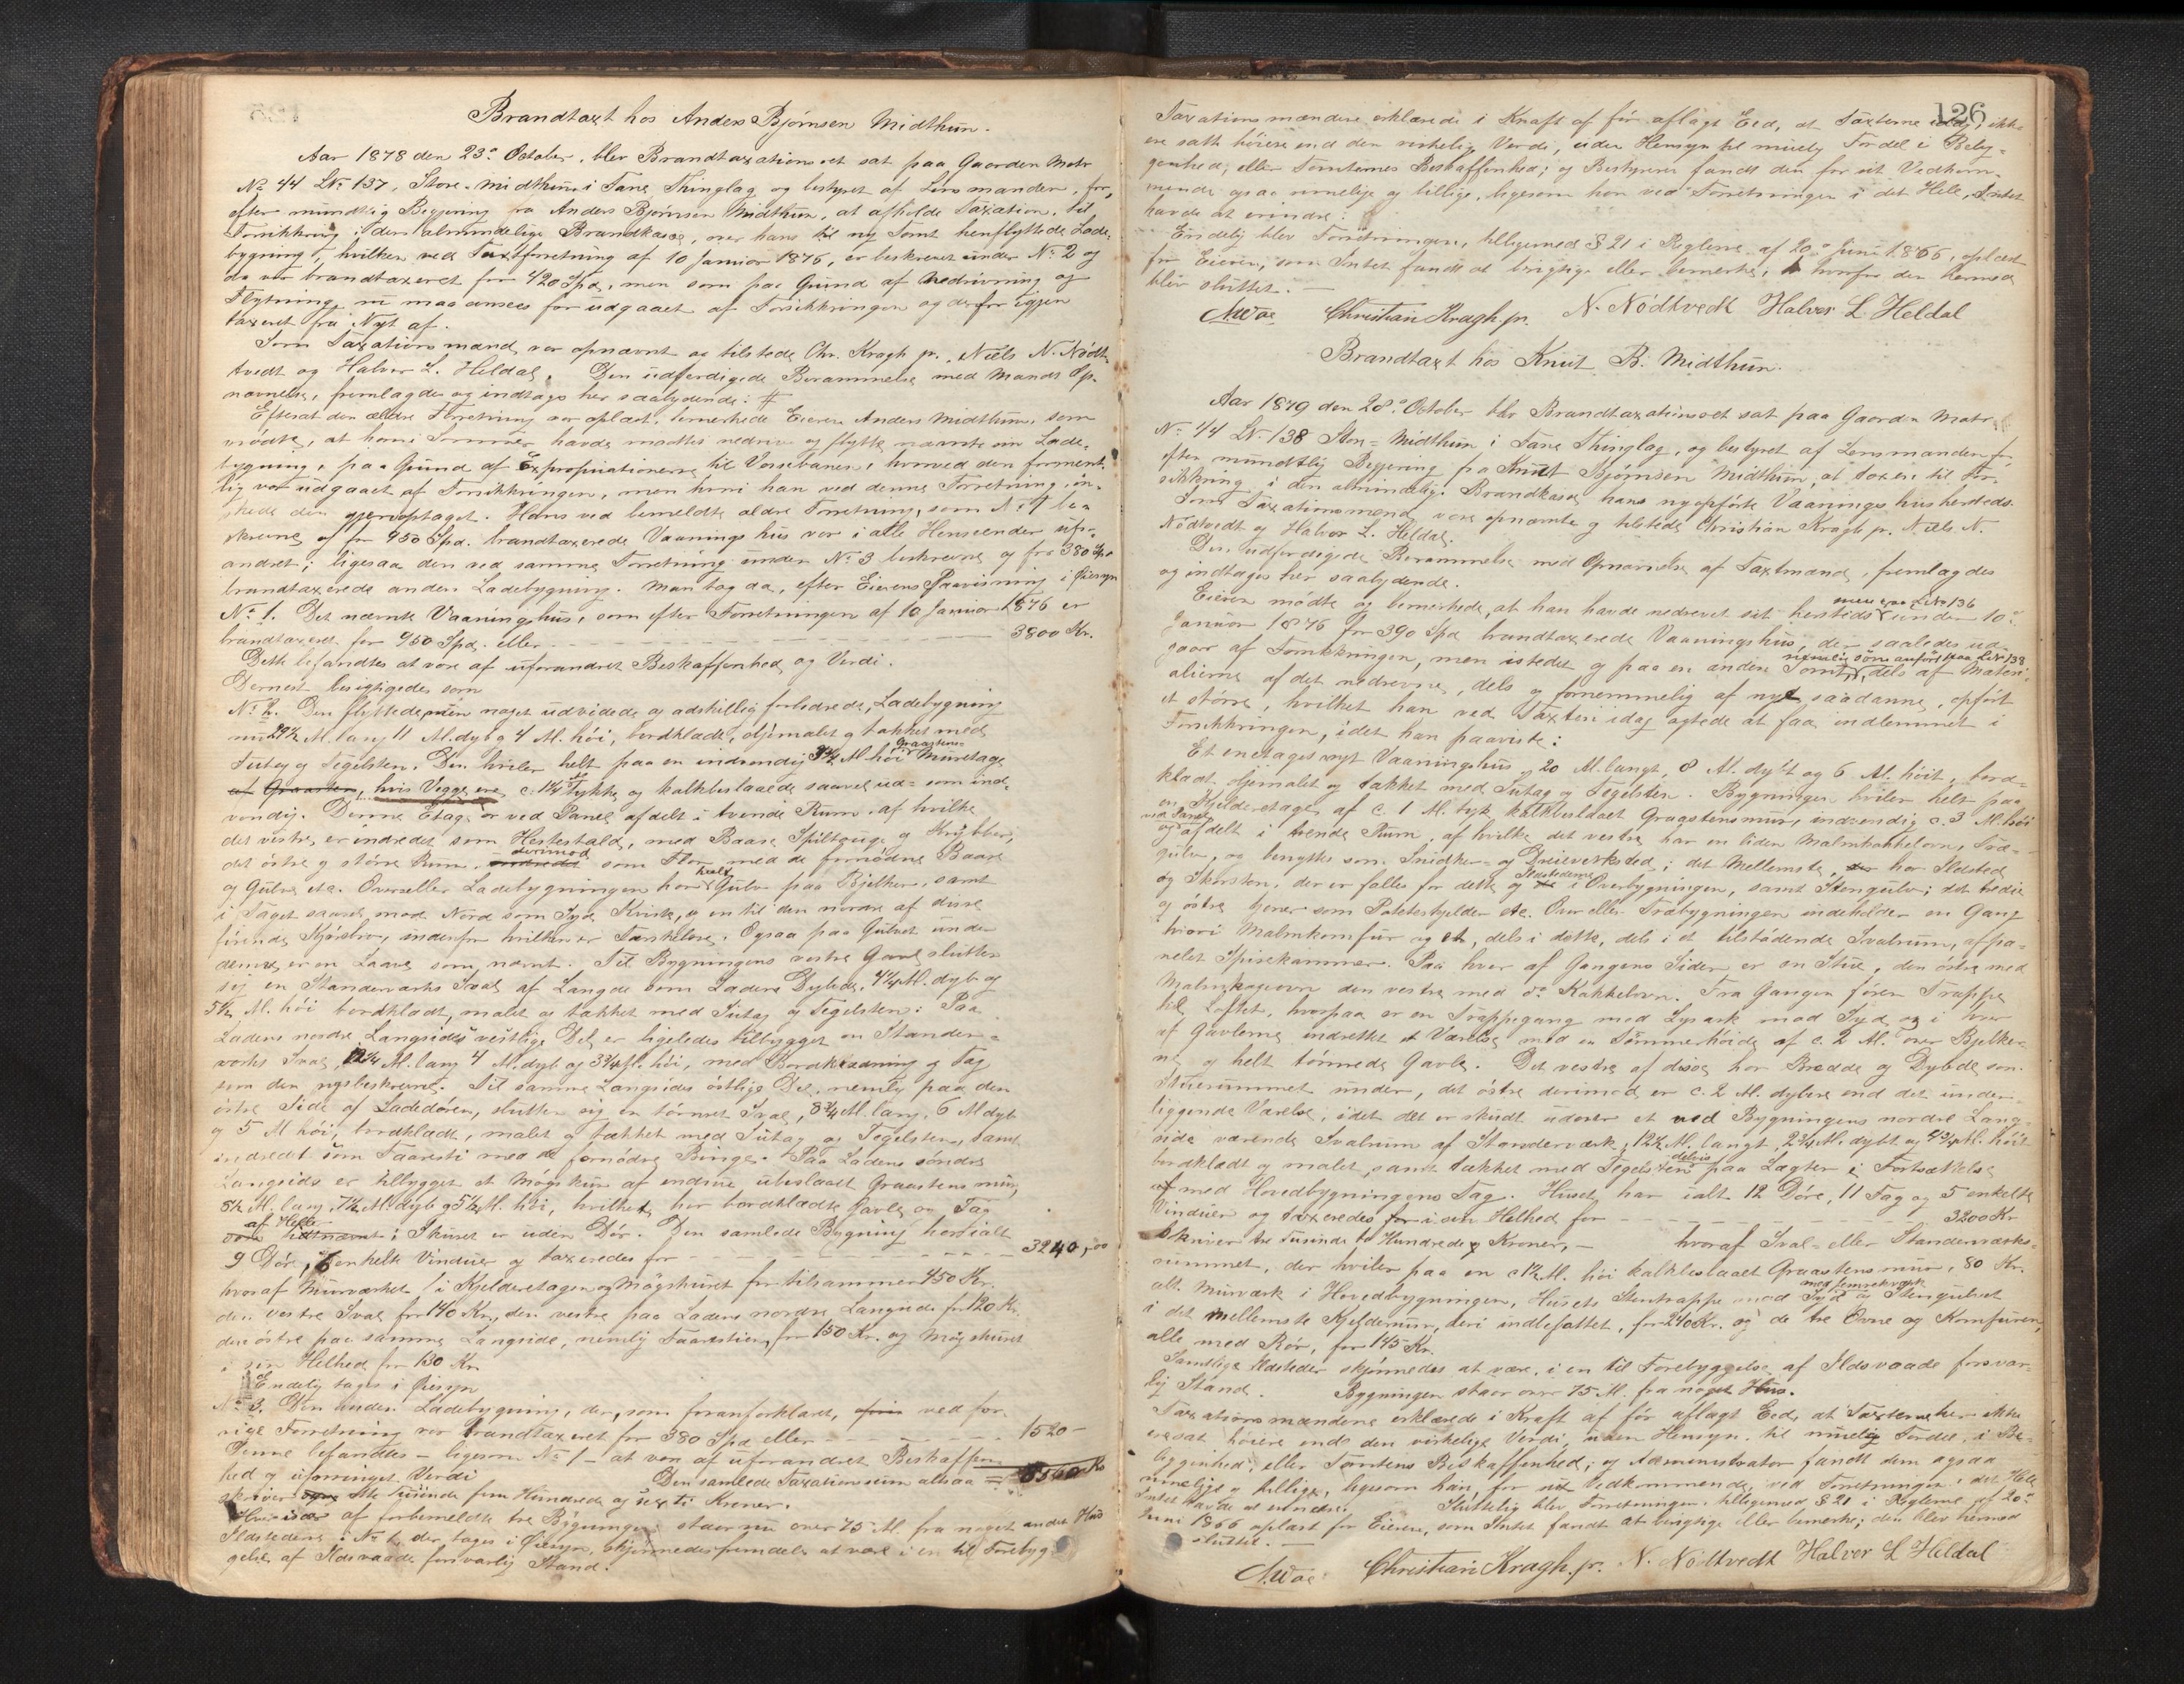 Brandtaxt hos Anders Bjørnsen Midthun.
Aar 1878 den 23de October, blev Brandtaxationsret sat paa Gaarden Matr
No 44 LNr 137, Store-Midthun i Fane Thinglag og bestyret af Lensmanden, for,
efter mundtlig Begjering fra Anders Bjørnsen Midthun, at afholde Taxation, til
Forsikkring i den almindelige Brandkasse, over hans til ny Tomt henflyttede Lade-
bygning, hvilken ved Taxtforretning af 10 Januar 1876, er beskrevet under No 2 og
da var brandtaxeret for 420 Spd, men som paa Grund af Nedrivning og
Flytning nu maa ansees for udgaaet af Forsikkringen og derfor igjen
taxeret fra Nyt af.
Som Taxationsmænd var opnævnt og tilstede Chr. Kragh jr., Niels N. Nødt-
tvedt og Halver L. Heldal. Den udferdigede Berammelse med Mands Op-
nævnelse, fremlagdes og indtages her saalydende: #
Efterat den ældre Forretning var oplæst, bemerkede Eieren Anders Midthun, som
mødte, at han i Sommer havde maattet nedrive og flytte nævnte sin Lade-
bygning, paa Grund af Expropriationerne til Vossebanen, hvorved den forment-
lig var udgaaet af Forsikkringen, men hvori han ved denne Forretning, øn-
skede den gjenoptaget. Hans ved bemeldte ældre Forretning, som No 1 be-
skrevne og for 950 Spd. brandtaxerede Vaaningshus var i alle Henseender ufor-
andret; ligesaa den ved samme Forretning under No 3 beskrevne og for 380 Spd
brandtaxerede anden Ladebygning. Man tog da, efter Eierens Paavisning i Øiesyn
No 1. Det nævnte Vaaningshus, som efter Forretningen af 10 Januar 1876 er
brandtaxeret for 950 Spd. eller 3800 Kr.
Dette befandtes at være af uforandret Beskaffenhed og Verdi.
Dernest besigtigedes som
No 2. Den flyttede, men noget udvidede og adskillig forbedrede, Ladebygning
nu 29½ Al. lang 11 Al. dyb og 4 Al. høi, bordklædt, oljemalet og tækket med
Sutag og Tegelsten. Den hviler helt paa en indvendig 3¾ Al. høi Graastens- Muretage
af Graasten, hvis Vægge ere c. 1¼ Al tykke og kalkbeslaaede saavel ud- som ind-
vendig. Denne Etage er ved Panel afdelt i tvende Rum, af hvilke
det vestre er indredet som Hestestald, med Baase Spiltouge og Krybber,
det østre og større Rum derimod som Flor, med de fornødne Baase
og Gulve etc. Over eller Ladebygningen har helt Gulv paa Bjelker, samt
i Taget saavel mod Nord som Syd Kviste, og en til den nordre af disse
førende Kjørebro, indenfor hvilken er Tærskelove. Ogsaa paa Gulvet under
denne er en Laave som nævnt. Til Bygningens vestre Gavl slutter
sig en Standerværks Sval af Længde som Ladens Dybde, 4¼ Al. dyb og
5½ Al. høi bordklædt, malet og tækket med Sutag og Tegelsten. Paa
Ladens nordre Langsides vestlige Del er ligeledes tilbygget en Stander-
værks Sval, 12¼ Al. lang 4 Al. dyb og 3¾ Al. høi, med Bordklædning og Tag
som den nysbeskrevne. Til samme Langsides østlige Del, nemlig paa den
østre Side af Ladedøren, slutter sig en tømret Sval, 8¾ Al. lang, 6 Al dyb
og 5 Al høi, bordklædt, malet og tækket med Sutag og Tegelsten, samt
indredet som Faaresti med de fornødne Binge. Paa Ladens søndre
Langside er tilbygget et Møgskur af endnu ubeslaaet Graastens mur,
8½ Al. lang, 7½ Al. dyb og 5½ Al. høi, hvilket har bordklædte Gavle og Tag
af Heller i Skuret er uden Dør. Den samlede Bygning har ialt
9 Døre, 6 enkelte Vinduer og taxeredes for 3240,00
hvoraf Murværket i Kjelderetagen og Møgskuret for tilsammen 450 Kr.
den vestre Sval for 140 Kr., den vestre paa Ladens nordre Langside for 120 Kr.
den østre paa samme Langside, nemlig Faarestien, for 150 Kr. og Møgskuret
i sin Helhed for 130 Kr.
Endelig toges i Øiesyn
No 3. Den anden Ladebygning, der, som foranforklaret, ved for-
rige Forretning var brandtaxeret for 380 Spd eller 1520 –
Denne befandtes – ligesom No 1 – at være af uforandret Beskaffen-
hed og uforringet Verdi Den samlede Taxationssum altsaa = 8560 Kr
skriver otte Tusinde fem Hundrede og sexti Kroner.
Hver især af forbemeldte tre Bygninger staar nu over 75 Al. fra noget andet Hus
Ildstederne i No 1, der toges i Øiesyn, skjønnedes fremdeles at være i en til Forebyg-
gelse af Ildsvaade forsvarlig Stand.
126
Taxationsmændene erklærede i Kraft af før aflagt Eed, at Taxterne idag, ikke
ere satte høiere end den virkelige Verdi, uden Hensyn til muelig Fordel i Belig-
genhed, eller Tomternes Beskaffenhed; og Bestyreren fandt den for sit Vedkom-
mende ogsaa rimelige og billige, ligesom han ved Forretningen i det Hele, Intet
havde at erindre:
Endelig blev Forretningen, tilligemed § 21 i Reglerne af 20de Juni 1866, oplæst
for Eieren, som Intet fandt at berigtige eller bemerke, hvorfor den hermed
blev sluttet. —
Christian Kragh jr. N. Nödtvedt Halver L Heldal
Brandtaxt hos Knut B. Midthun.
Aar 1879 den 28de October blev Brandtaxationsret sat paa Gaarden Matr
No 44 LNr 138 Store-Midthun i Fane Thinglag, og bestyret af Lensmanden for
efter mundtlig Begjering fra Knut Bjørnsen Midthun, at taxere til For-
sikkring i den almindelige Brandkasse hans nyopførte Vaaningshus hersteds.
Som Taxationsmænd vare opnævnte og tilstede Christian Kragh jr. Niels N.
Nødtvedt og Halver L. Heldal.
Den udferdigede Berammelse med Opnævnelse af Taxtmænd, fremlagdes
og indtages her saalydende.
Eieren mødte og bemerkede, at han havde nedrevet sit hersteds men paa LNo 136 under 10de
Januar 1876 for 390 Spd brandtaxerede Vaaningshus, der saaledes ud-
gaar af Forsikkringen, men istedet og paa en anden Tomt, nemlig som anført paa LNr 138 dels af Materi-
alierne af det nedrevne, dels og fornemmelig af nye saadanne, opført
et større, hvilket han ved Taxten idag agtede at faa indlemmet i
Forsikkringen, idet han paaviste:
Et enetages nyt Vaaningshus, 20 Al. langt, 8 Al. dybt og 6 Al. høit, bord-
klædt, oljemalet og tækket med Sutag og Tegelsten. Bygningen hviler helt paa
en Kjelderetage af c. 1 Al. tyk kalkbeslaaet Graastensmur, indvendig c. 3 Al. høi
og ved Panel afdelt i trende Rum, af hvilke det vestre har en liden Malmkakkelovn, Jord-
gulv, og benyttes som Snidker- og Dreieverksted; det Mellemste, har Ildsted
og Skorsten, der er fælles for dette og Ildstederne i Overbygningen, samt Stengulv; det tredie
og østre tjener som Potteskjelder etc. Over eller Træbygningen indeholder en Gang
hvori Malmkomfur og et, dels i dette, dels i et tilstødende Svalrum, afpa-
nelet Spisekammer. Paa hver af Gangens Sider er en Stue, den østre med
Malmkapovn den vestre med do Kakkelovn. Fra Gangen fører Trappe
til Loftet, hvorpaa er en Trappegang med Lysark mod Syd, og i hver
af Gavlerne indrettet et Værelse med en Tømmerhøide af c. 2 Al. over Bjelker-
ne og helt tømrede Gavle. Det vestre af disse har Bredde og Dybde som
Stuerummet under, det østre derimod er c. 2 Al. dybere end det under-
liggende Værelse, idet det er skudt udover et ved Bygningens nordre Lang-
side værende Svalrum af Standerværk, 12½ Al. langt, 2¾ Al. dybt og 4¾ Al. høit
bordklædt og malet, samt tækket med Tegelsten delvis paa Lægter i Fortsættelse
med Hovedbygningens Tag. Huset har ialt 12 Døre, 11 Fag og 5 enkelte
Vinduer og taxeredes i sin Helhed for 3200 Kr
skriver tre Tusinde to Hundrede Kroner, – hvoraf Sval- eller Standerværks-
rummet, der hviler paa en c 1½ Al. høi kalkbeslaaet Graastensmur, 80 Kr.
alt Murværk i Hovedbygningen, Husets Stentrappe mod Syd og Stengulvet
i det mellemste Kjelderrum, deri indbefattet, for 240 Kr. og de tre Ovne og Komfuren,
alle med Rør, for 145 Kr.
Samtlige Ildsteder skjønnedes at være i en til Forebyggelse af Ildsvaade forsvar-
lig Stand. Bygningen staar over 75 Al. fra noget Hus.
Taxationsmændene erklærede i Kraft af før aflagt Eed, at Taxterne her ikke
ere sat høiere end den virkelige Verdi, uden Hensyn til muelig Fordel i Be-
liggenhed, eller Tomtens Beskaffenhed; og Administrator fandt dem ogsaa
rimelige og billige, ligesom han, for sit Vedkommende, ved Forretningen i det Hele
Intet havde at erindre. Sluttelig blev Forretningen tilligemed § 21 i Reglerne af 20de
Juni 1866 oplæst for Eieren, som Intet fandt at berigtige eller bemerke; den blev hermed
sluttet. —
Christian Kragh jr. N. Nödtvedt Halver L Heldal